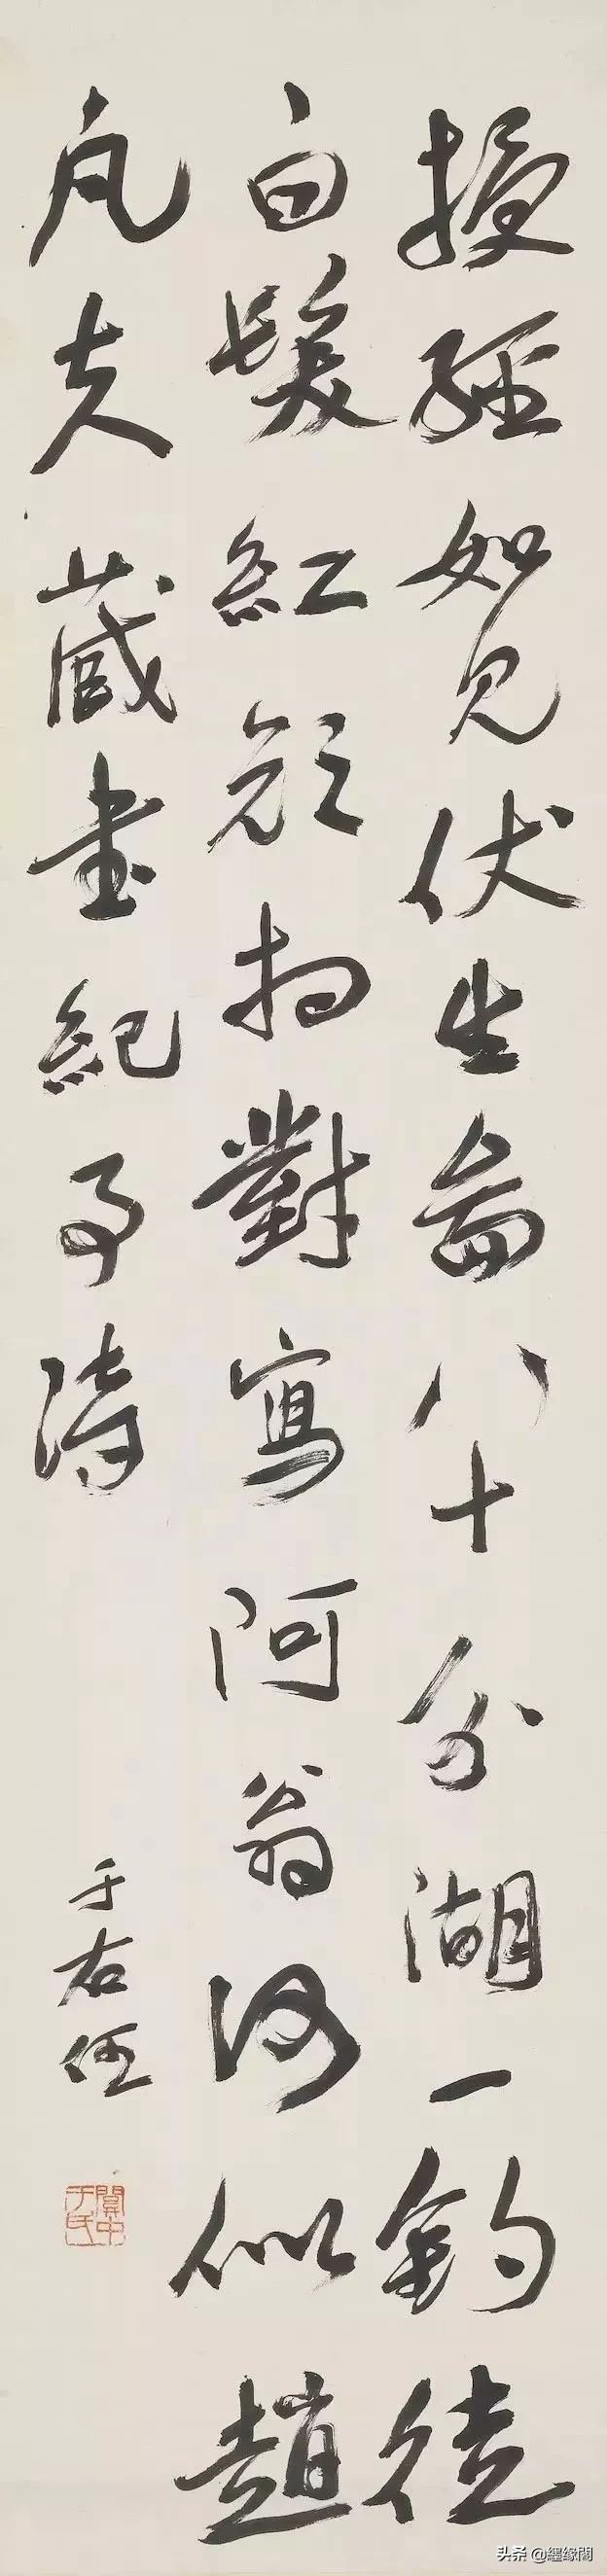 授經如見伏生圖八十分湖一釣徒
白髮紅顏相對寫阿翁何似趙
凡夫藏書紀事詩
于右任
關中于氏
头条 @纒缘閣